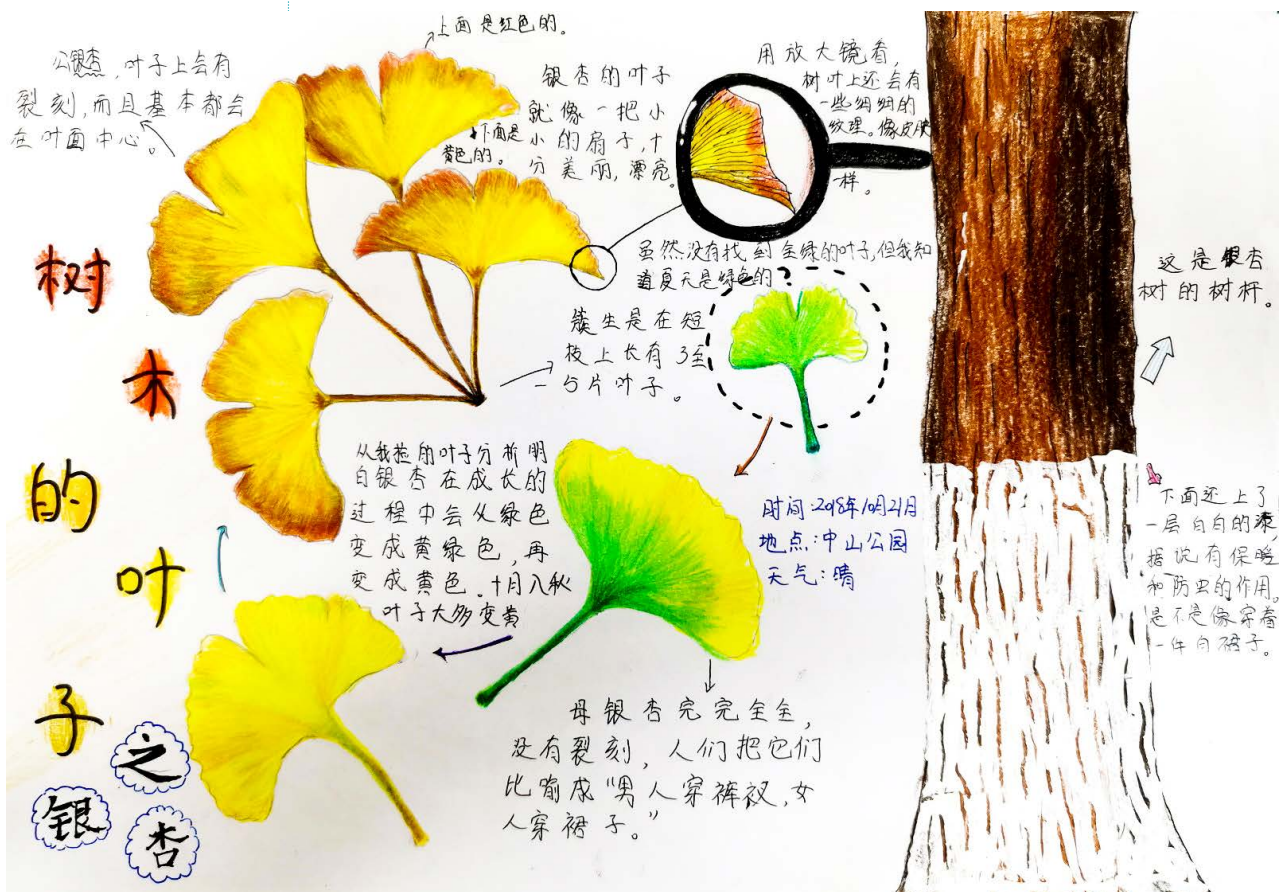 树
木
的
叶
子
之
银
杏
公银杏,叶子上会有
裂刻,而且基本都会
在叶面中心。
上面是红色的。
下面是
黄色的。
银杏的叶子
就像一把小
小的扇子,十
分美丽,漂亮。
用放大镜看,
树叶上还会有
一些细细的
纹理。像皮肤
一样。
虽然没有找到全绿的叶子,但我知
道夏天是绿色的
?
簇生是在短
枝上长有3至
5片叶子。
从我捡的叶子分析明
白银杏在成长的
过程中会从绿色
变成黄绿色,再
变成黄色。十月入秋
叶子大多变黄
时间:2018年10月21日
地点:中山公园
天气:晴
母银杏完完全全,
没有裂刻,人们把它们
比喻成“男人穿裤衩,女
人穿裙子。”
这是银杏
树的树杆。
下面还上了
一层白白的漆,
据说有保暖
和防虫的作用。
是不是像穿着
一件白裙子。